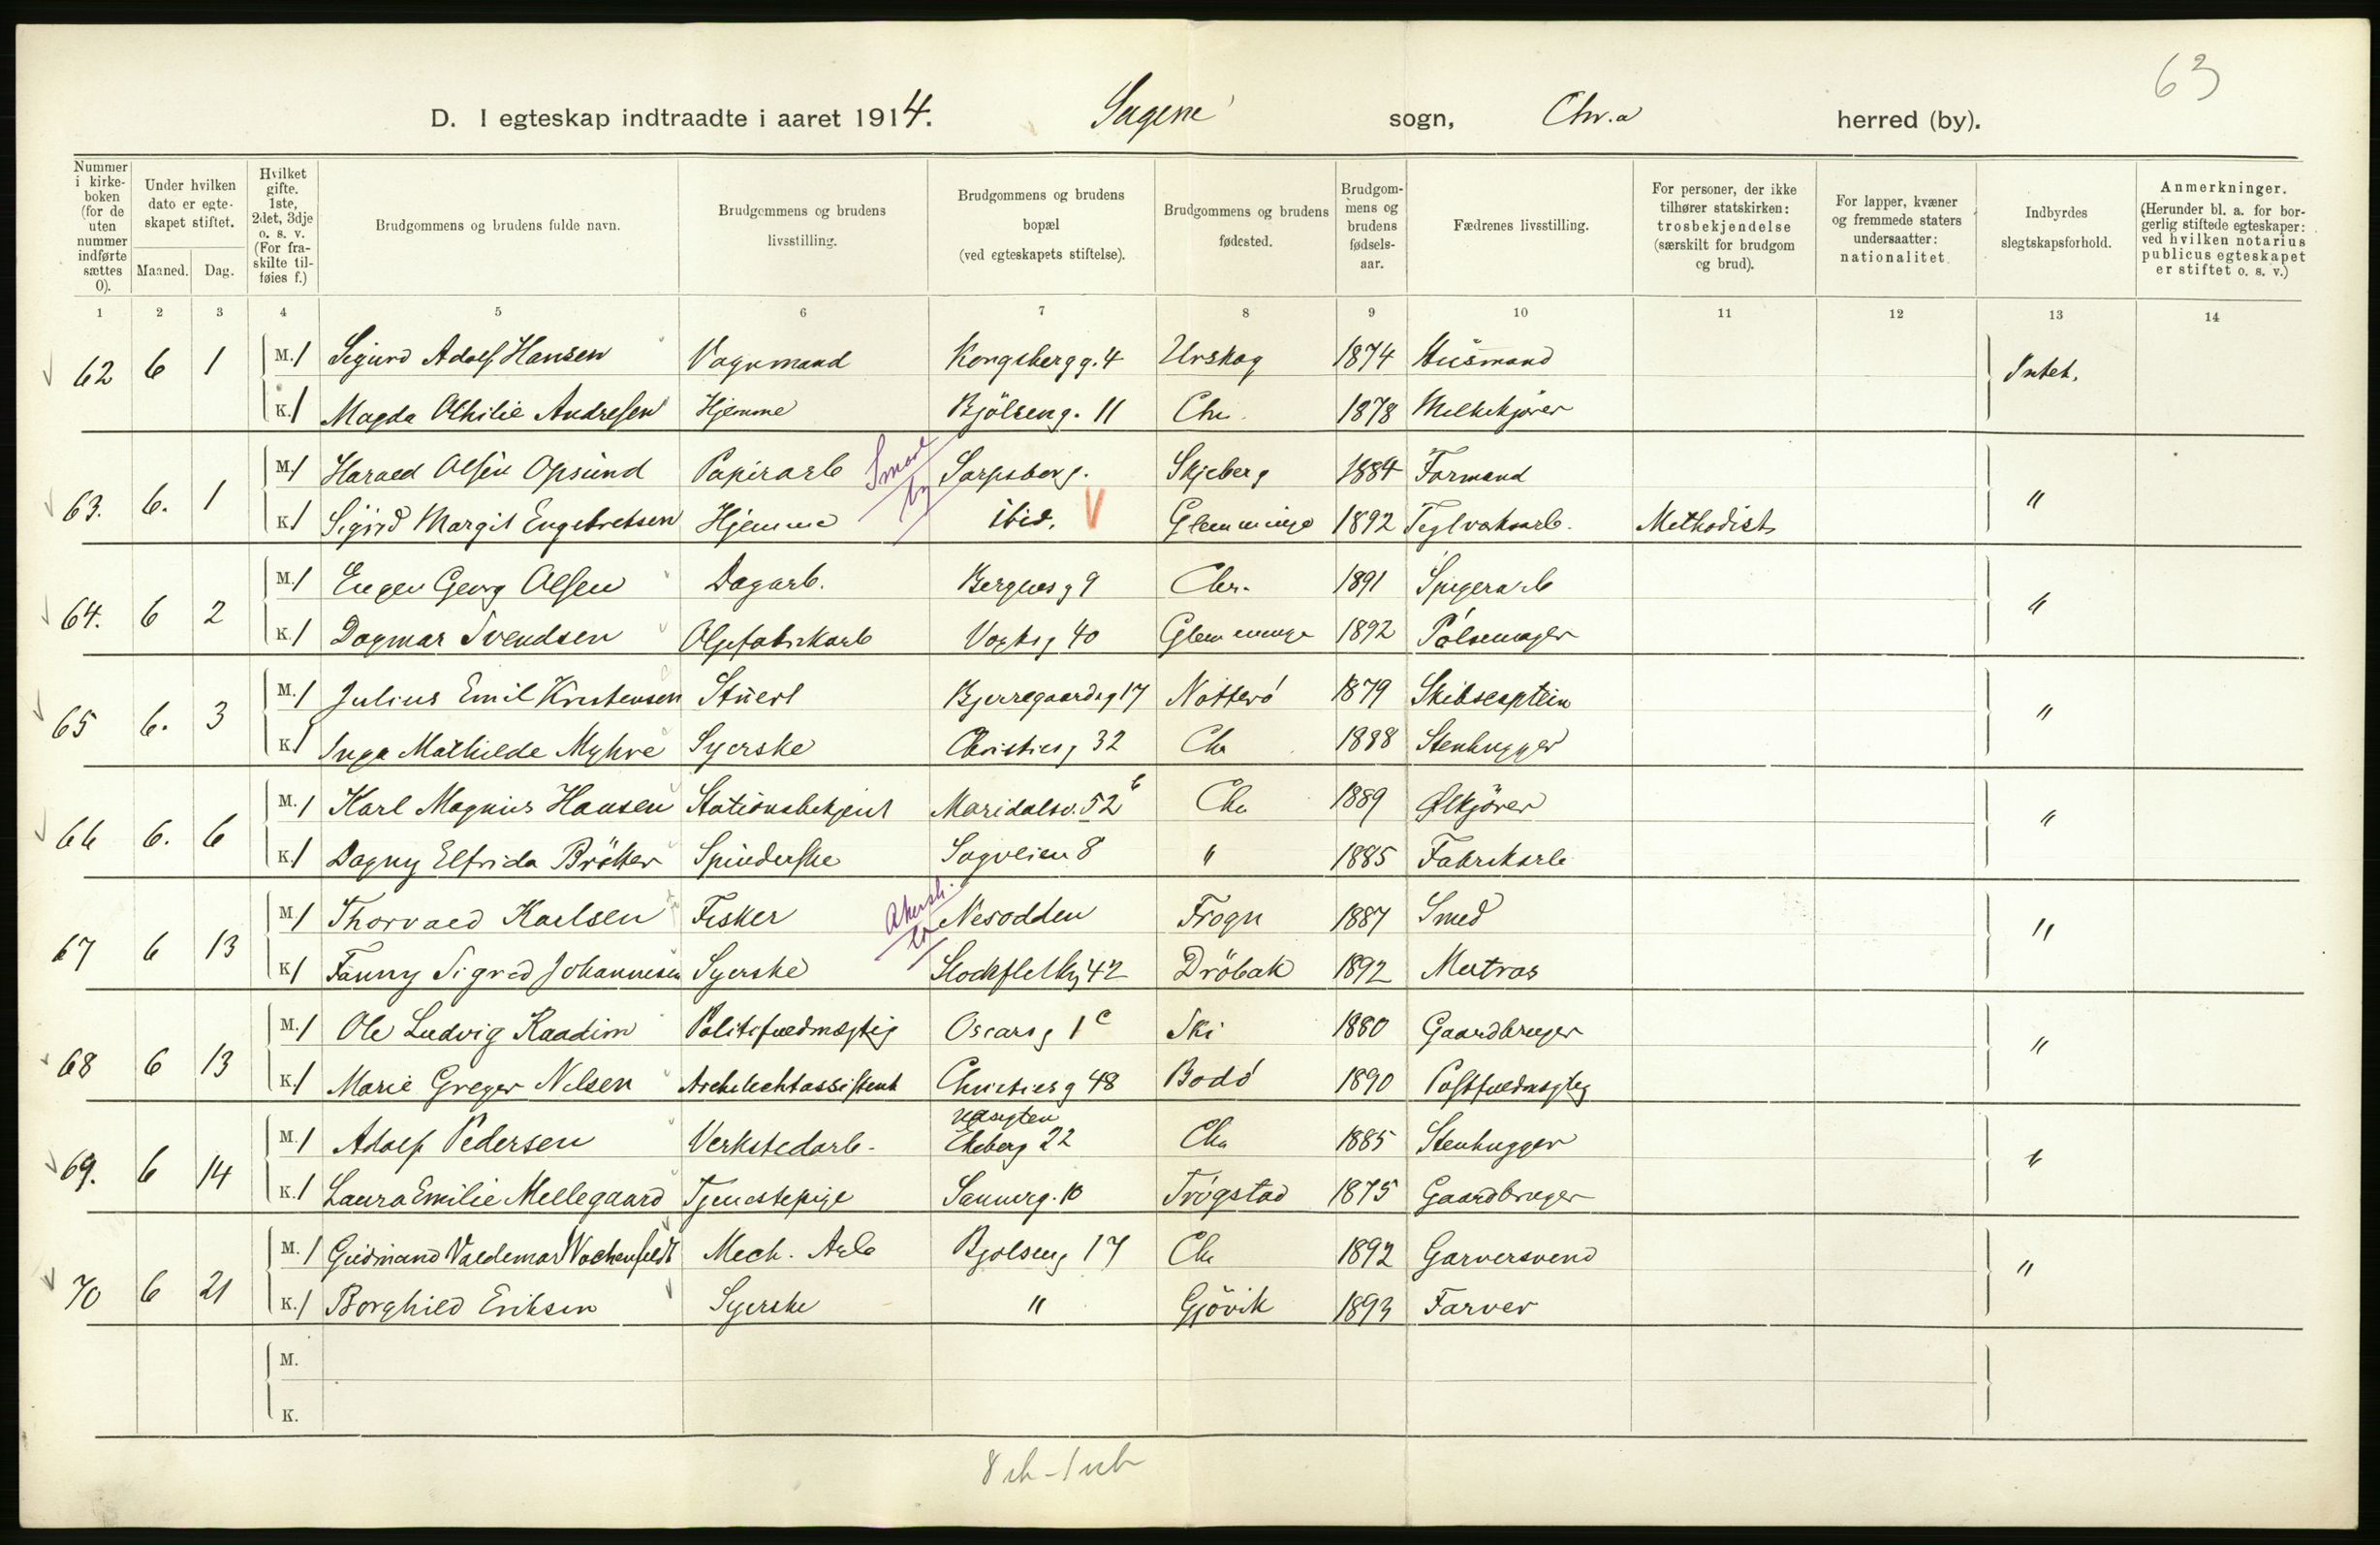 63
D. I egteskap indtraadte i aaret 1914. Sagene sogn, Chr.a herred (by).
Nummer i kirke-boken (for de uten nummer indførte sættes 0).
Under hvilken dato er egte-skapet stiftet.
Maaned. Dag.
Hvilket gifte. 1ste, 2det, 3dje o. s. v. (For fra-skilte til-føies f.)
Brudgommens og brudens fulde navn.
Brudgommens og brudens livsstilling.
Brudgommens og brudens bopæl (ved egteskapets stiftelse).
Brudgommens og brudens fødested.
Brudgom-mens og brudens fødsels-aar.
Fædrenes livsstilling.
For personer, der ikke tilhører statskirken: trosbekjendelse (særskilt for brudgom og brud).
For lapper, kvæner og fremmede staters undersaatter: nationalitet
Indbyrdes slegtskapsforhold.
Anmerkninger. (Herunder bl. a. for bor-gerlig stiftede egteskaper: ved hvilken notarius publicus egteskapet er stiftet o. s. v.)
1 2 3 4 5 6 7 8 9 10 11 12 13 14
62 6 1 M. 1 Sigurd Adolf Hansen Vognmand Kongsbergg. 4 Urskog 1874 Husmand Intet.
K. 1 Magda Othilie Andresen Hjemme Bjölseng. 11 Chr. 1878 Melkekjører
63. 6. 1 M. 1 Harald Olsen Opsund Papirarb Sarpsborg. Skjeberg 1884 Formand "
K. 1 Sigrid Margit Engebretsen Hjemme ibid. V Glemminge 1892 Teglverksarb. Methodist
64. 6 2 M. 1 Eugen Georg Olsen Dagarb. Bergnes g 9 Chr. 1891 Spigerarb "
K. 1 Dagmar Svendsen Oljefabrikarb Vogtsg 40 Glemminge 1892 Pölsemager
65 6. 3 M. 1 Julius Emil Kristensen Stuert Bjerregaardsg 17 Nötterö 1879 Skibscaptein "
K. 1 Inga Mathilde Myhre Syerske Christiesg 32 Chr 1888 Stenhugger
66 6. 6 M. 1 Karl Magnus Hansen Stationsbetjent Maridalsv. 52 b Chr 1889 Ølkjörer "
K. 1 Dagny Elfrida Brötker Spinderske Sagveien 8 " 1885 Fabrikarb
67 6 13 M. 1 Thorvald Karlsen Fisker Akersh. Nesodden Frogn 1887 Smed "
K. 1 Fanny Sigrid Johannesen Syerske Stockflethsg 42 Dröbak 1892 Matros
68 6 13 M. 1 Ole Ludvig Kaadim Politifuldmægtig Oscarsg 1 c Ski 1880 Gaardbruger "
K. 1 Marie Greger Nilsen Arkitektassistent Christiesg 48 Bodö 1890 Postfuldmægtig
69. 6 14 M. 1 Adolf Pedersen Verkstedarb. Utsigten Ekeberg 22 Chr 1885 Stenhugger "
K. 1 Laura Emilie Mellegaard Tjenestepige Sannerg. 10 Trögstad 1875 Gaardbruger
70 6 21 M. 1 Gudmand Valdemar Wachenfeldt Mech. Arb Bjolseng 17 Chr 1892 Garversvend "
K. 1 Borghild Eriksen Syerske " Gjövik 1893 Farver
M.
K.